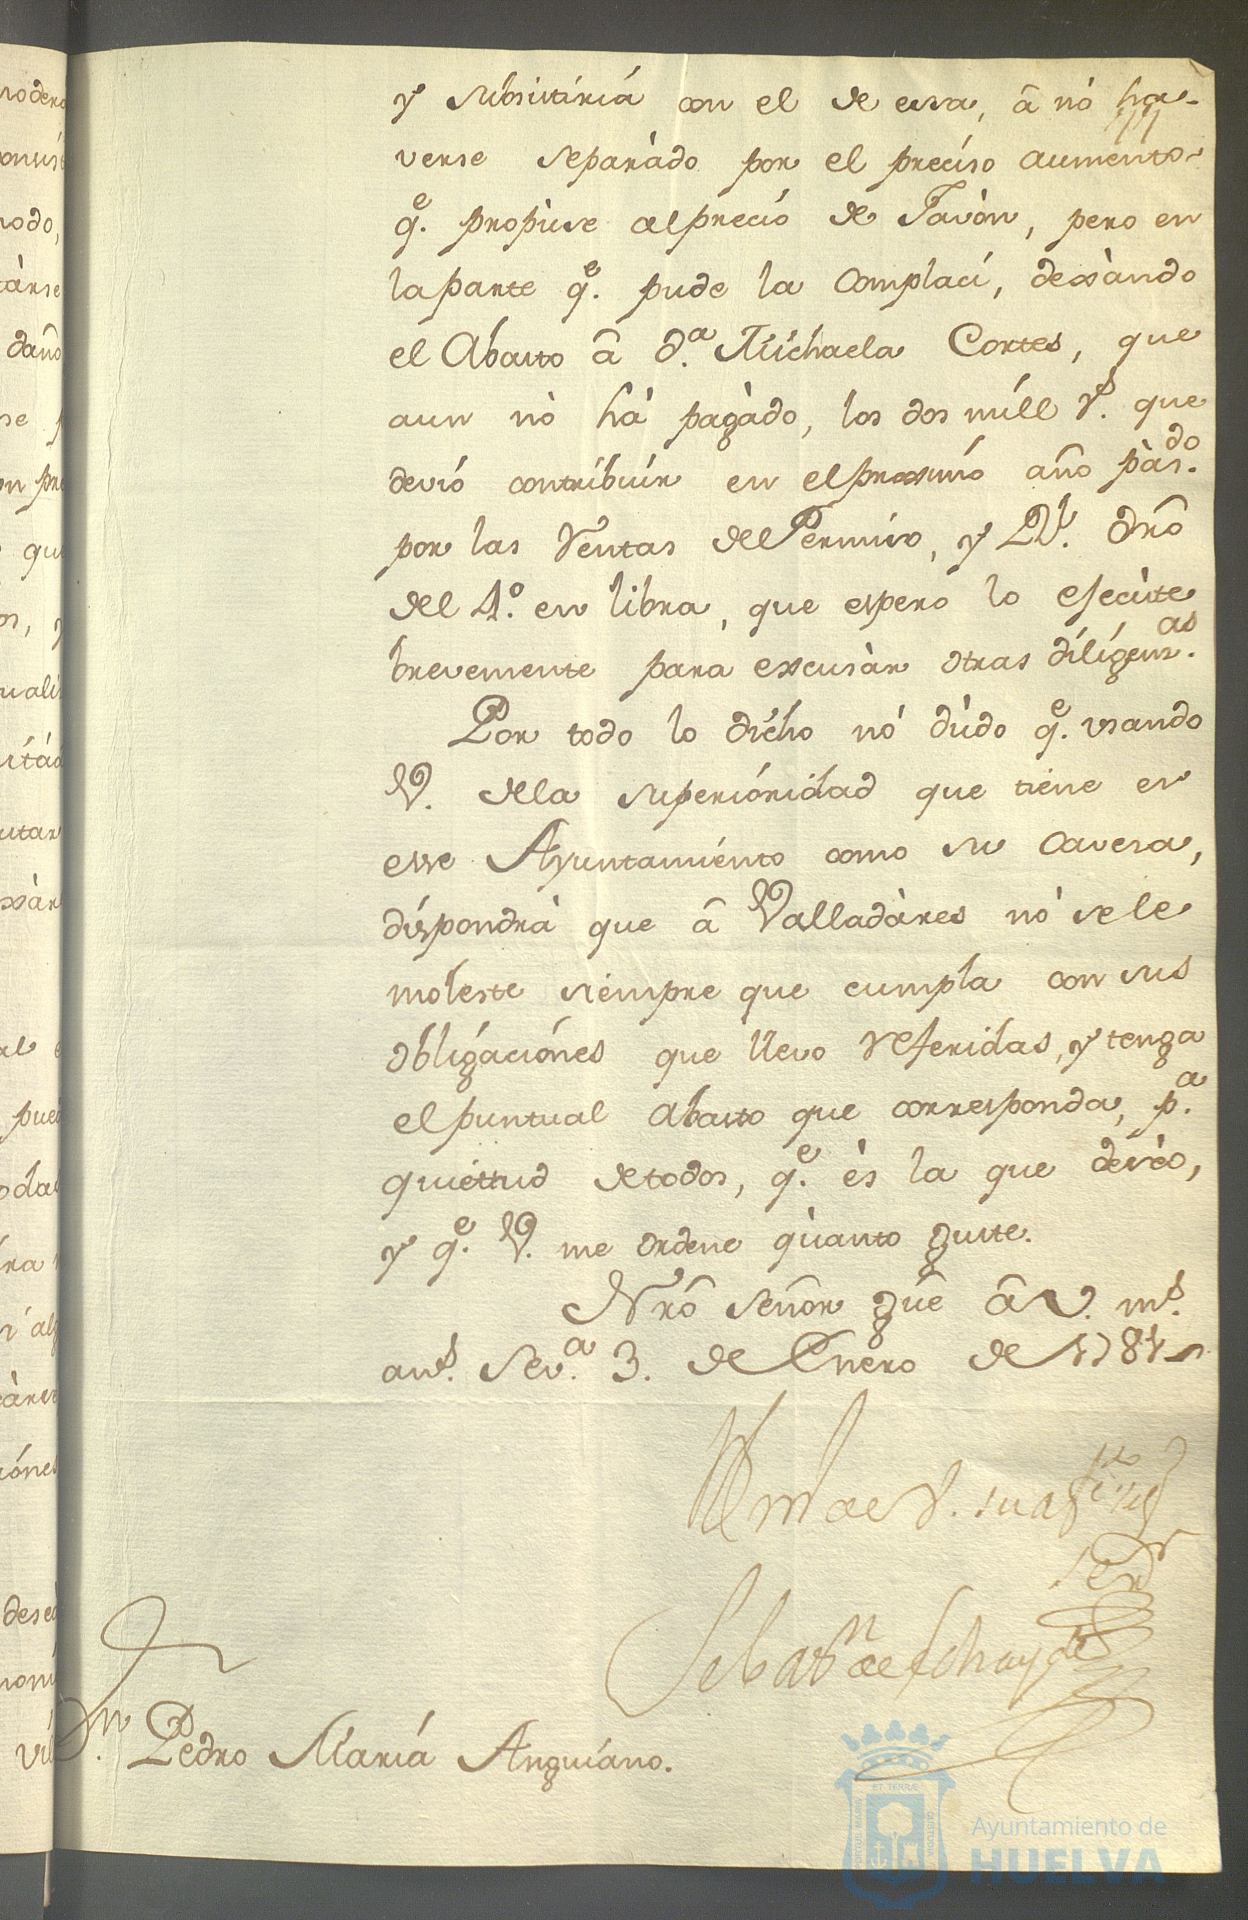 y subsistiria con el de essa, â no ha-
verse separàdo por el preciso aumento
q.e propùse al preciò de Javòn, pero en
la parte q.e pude la complací, dexàndo
el Abasto â d.a Michaela Cortes, que
aun nò há pagàdo, los dos mill r.s que
devió contribuir en el proximo año pàs.do
por las Ventas del Permiso, y Rl. dro
del 4.o en libra, que espero lo efecùte
brevemente para excusàr otras diligenz.as
Por todo lo dicho nó dùdo q.e usando
V. de la superióridad que tiene en
esse Ayuntamiento como su Cavesa,
dispondrà que â Valladàres nó se le
moleste siempre que cumpla con sus
obligaciónes que llevo referidas, y tenga
el puntual Abasto que corresponda, p.a
quiettud de todos, q.e ès la que deséo,
y q.e V. me ordene quanto guste.
Nrô Señor gûe â V. m.s
an.s Sev.a 3. de Enero de 1781
BLM de V. su
ser.or
Sebast.n de
D.n Pedro María Anguiano.
Ayuntamiento de
HUELVA